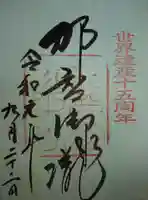 世界遺産十五周年
那智御瀧
令和元年
九月